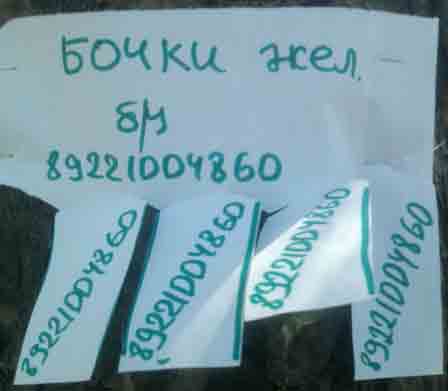 БОЧКИ жел.
б/у
89221004860
89221004860
89221004860
89221004860
89221004860